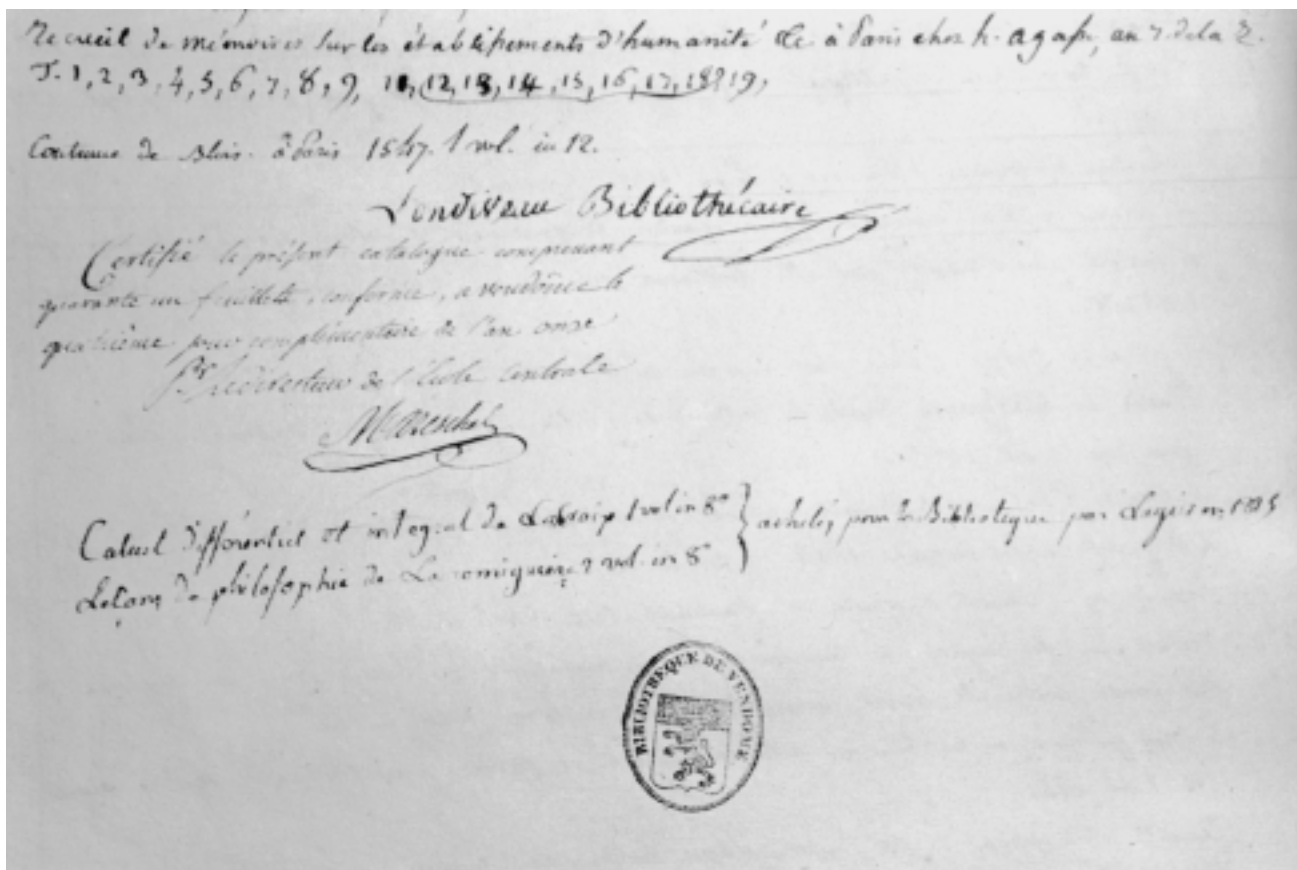 Recueil de mémoires sur les établissements d'humanité &c. à Paris chez h. agasse, an 7. de la R.
T. 1, 2, 3, 4, 5, 6, 7, 8, 9, 11, 12, 13, 14, 15, 16, 17, 18 19,
Coutume de Blois. à Paris 1547. 1 vol. in 12.
Bibliothécaire
Certifié le présent catalogue comprenant
quarante un feuillets, conforme, a vendôme le
quatrième jour complémentaire de l'an onze
Pr le directeur de l'école centrale
Mareschal
Calcul différentiel et integral de Lacroix 1 vol in 8°
Leçons de philosophie de Laromiguiere 2 vol. in 8
achetés pour la Biblioteque par
BIBLIOTHEQUE DE VENDOME